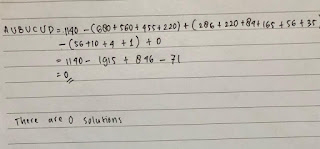 AUBUCUD = 1140 - (680 + 560 + 455 + 220) + (286 + 220 + 84 + 165 + 56 + 35)
- (56 + 10 + 4 + 1) + 0
= 1140 - 1915 + 846 - 71
= 0
There are 0 solutions